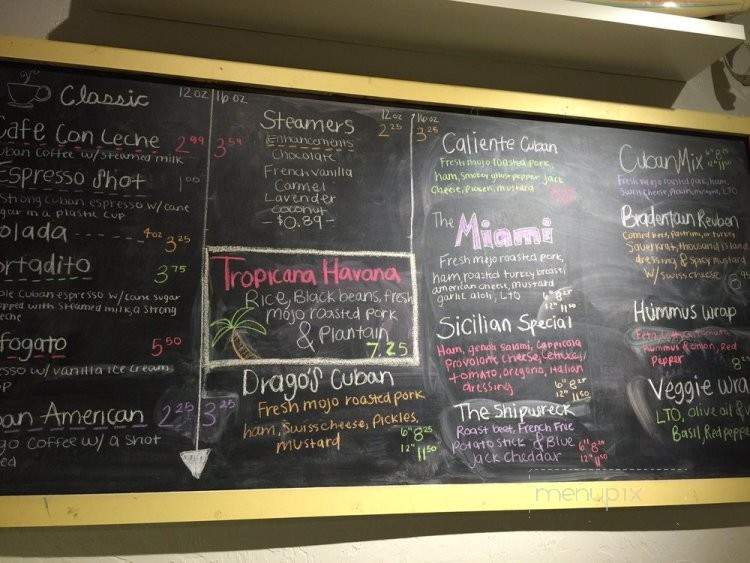 Classic 12oz 16oz
Cafe Con Leche 2.99 3.59
Cuban coffee w/ steamed milk
Espresso Shot 1.00
Strong cuban espresso w/ cane
sugar in a plastic cup
olada 4oz 3.25
ortadito 3.75
cuban espresso w/ cane sugar
topped with steamed milk, a strong
fogato 5.50
w/ vanilla ice cream
ban American 2.25 3.25
coffee w/ a shot
Steamers 12oz 16oz
2.25 3.25
Enhancements
Chocolate
French vanilla
Carmel
Lavender
coconut
- $0.89 -
Tropicana Havana
Rice, Black beans, fresh
mojo roasted pork
& Plantain
7.25
Drago's Cuban
Fresh mojo roasted pork,
ham, Swiss cheese, Pickles,
mustard
6" 8.25
12" 11.50
Caliente Cuban
Fresh mojo roasted pork
ham, smokey ghost pepper jack
cheese, Pickles, mustard
The
Miami
Fresh mojo roasted pork,
ham roasted turkey breast/
american cheese, mustard
garlic aioli, LTO
6" 8.25
12" 11.50
Sicilian Special
Ham, genoa salami, Cappicola
Provolone cheese, Lettuce/
tomato, oregano, italian
dressing
6" 8.25
12" 11.50
The Shipwreck
Roast beef, French Frie
Potato stick & Blue
Jack cheddar
6" 8.25
12" 11.50
Cuban Mix 6" 8.25
12" 11.50
Fresh mojo roasted pork, ham,
Swiss cheese, Pickles, mustard, LTO
Bradentucky Reuban
Corned beef, Pastrami, or turkey
Sauerkraut, thousand island
dressing & spicy mustard
w/ swiss cheese
Hummus Wrap
hummus & onion, Red
Pepper
Veggie Wra
LTO, olive oil &
Basil, Red peppe
menupix